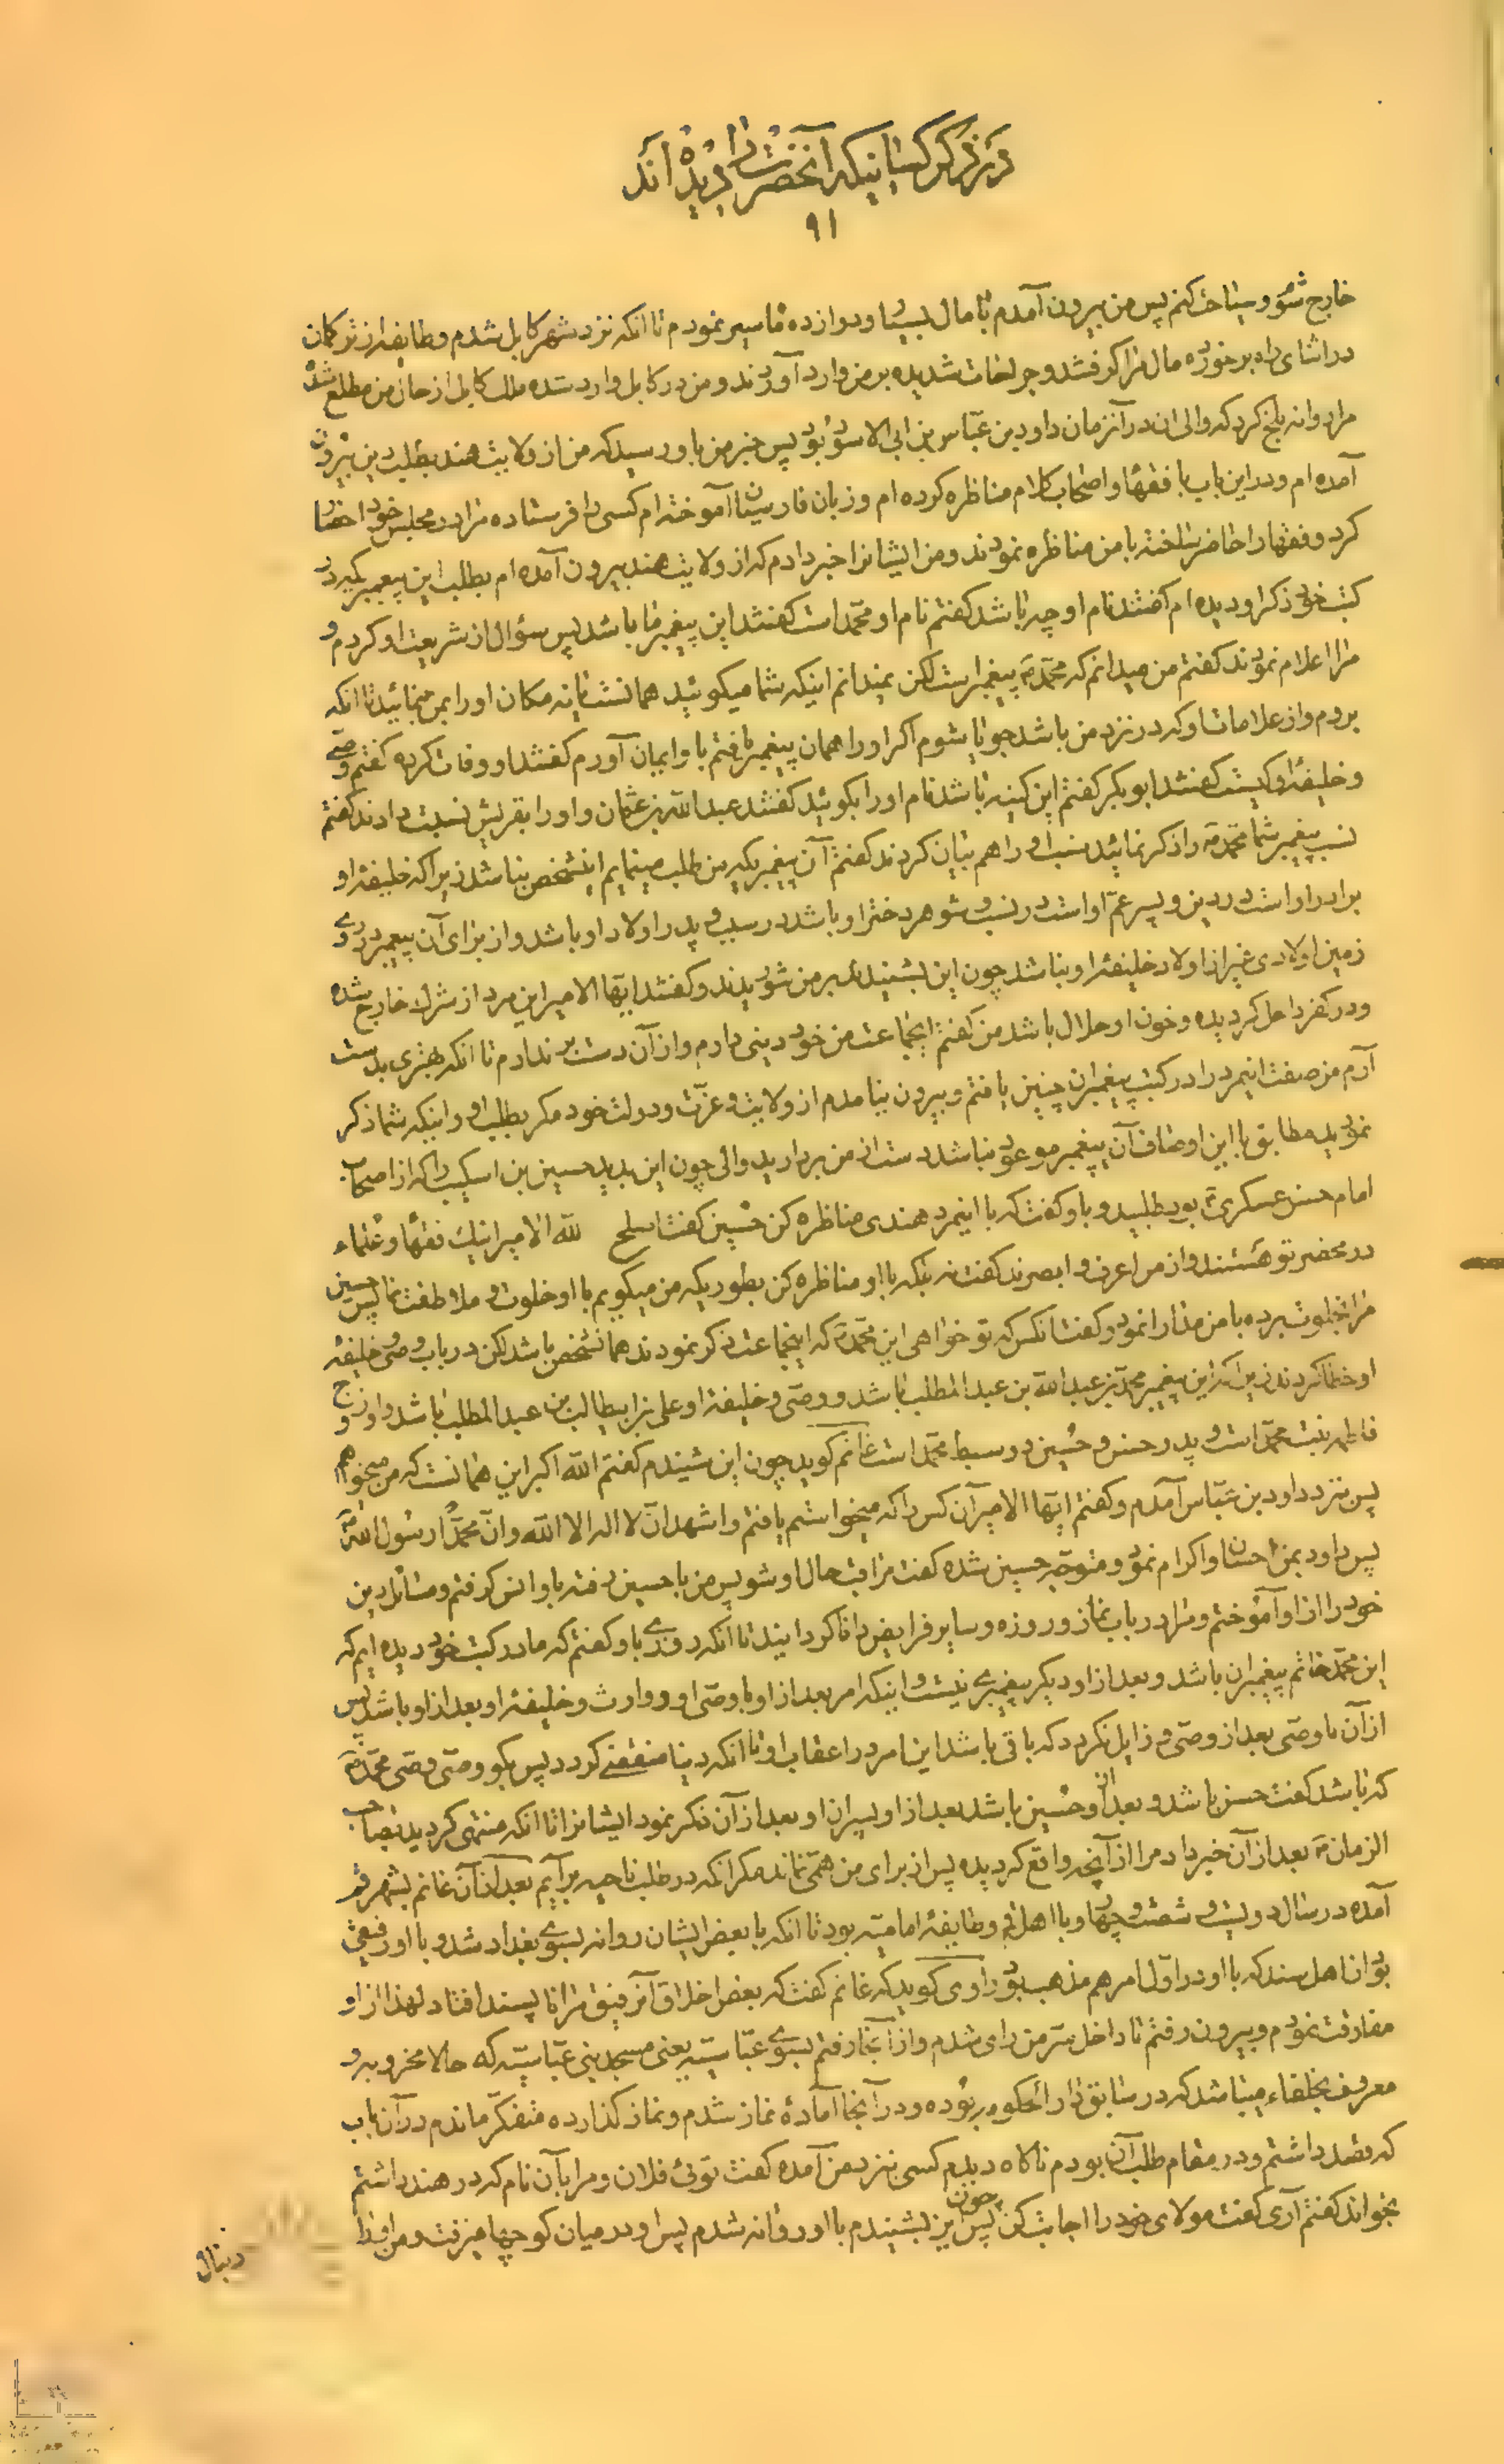 در ذکر کسانیکه آنحضرت را دیده اند
۹۱
خارج شو و سیاحت کنم پس من بیرون آمدم با مال بسیار و دوازده ماه سیر نمودم تا انکه نزد شهر کابل شدم و طایفه از ترکمان
در اثنای راه برخورده مال مرا گرفتند و جراحات شدیده بر من وارد آوردند و من در کابل وارد شده ملک کابل از حال من مطلع شده
مرا روانه بلخ کرد که والی ان در آنزمان داود بن عباس بن ابی الاسود بود پس خبر من باو رسید که من از ولایت هند بطلب دین بیرون
آمده ام و در این باب با فقها و اصحاب کلام مناظره کرده ام و زبان فارسیان آموخته ام کسی را فرستاده مرا در مجلس خود احضار
کرد و فقها را حاضر ساخته با من مناظره نمودند و من ایشانرا خبر دادم که از ولایت هند بیرون آمده ام بطلب این پیغمبر که در
کتب خود ذکر او دیده ام گفتند نام او چه باشد گفتم نام او محمد است گفتند این پیغمبر ما باشد پس سؤال از شریعت او کردم و
مرا اعلام نمودند گفتم من میدانم که محمد ص پیغمبر است لکن نمیدانم اینکه شما میگوئید همانست یا نه مکان او را بمن بنمائید تا انکه
بروم و از علامات او که در نزد من باشد جویا شوم اگر او را همان پیغمبر یافتم باو ایمان آورم گفتند او وفات کرده گفتم وصی
و خلیفه او کیست گفتند ابوبکر گفتم این کنیه باشد نام او را بگوئید گفتند عبد الله بن عثمان و او را بقریش نسبت دادند گفتم
نسب پیغمبر شما محمد ص را ذکر نمائید نسب او را هم بیان کردند گفتم آن پیغمبریکه من طلب مینمایم اینشخص نباشد زیرا که خلیفه او
برادر او است در دین و پسر عم او است در نسب و شوهر دختر او باشد در سبب و پدر اولاد او باشد و از برای آن پیغمبر در روی
زمین اولادی غیر از اولاد خلیفه او نباشد چون این بشنیدند بر من شوریدند و گفتند ایها الامیر این مرد از شرک خارج شده
و در کفر داخل گردیده و خون او حلال باشد من گفتم ایجماعت من خود دینی دارم و از آن دست بر ندارم تا انکه بهتری بدست
آرم من صفت اینمرد را در کتب پیغمبران چنین یافتم و بیرون نیامدم از ولایت و عزت و دولت خود مگر بطلب او و اینکه شما ذکر
نمودید مطابق با این اوصاف آن پیغمبر موعود نباشد دست از من بردارید والی چون این بدید حسین بن اسکیب را که از اصحاب
امام حسن عسکری ع بود طلبید و باو گفت که با اینمرد هندی مناظره کن حسین گفت اصلح الله الامیر اینک فقها و علماء
در محضر تو هستند و از من اعرف و ابصرند گفت نه بلکه با او مناظره کن بطوریکه من میگویم با او خلوت و ملاطفت نما پس حسین
مرا بخلوت برده با من مدارا نمود و گفت انکس که تو خواهی این محمد ص که اینجماعت ذکر نمودند همانشخص باشد لکن در باب وصی و خلیفه
او خطا کردند زیرا که این پیغمبر محمد بن عبد الله بن عبد المطلب باشد و وصی و خلیفه او علی بن ابیطالب بن عبد المطلب باشد و او زوج
فاطمه بنت محمد است و پدر حسن و حسین دو سبط محمد است غانم گوید چون این شنیدم گفتم الله اکبر این همانست که من میخواهم
پس نزد داود بن عباس آمدم و گفتم ایها الامیر آن کس را که میخواستم یافتم و اشهد ان لا اله الا الله و ان محمدا رسول الله
پس داود بمن احسان و اکرام نمود و متوجه حسین شده گفت مراقب حال او شو پس من با حسین رفته باو انس گرفتم و مسائل دین
خود را از او آموختم و مرا در باب نماز و روزه و سایر فرایض دانا گردانید تا انکه روزی باو گفتم که ما در کتب خود دیده ایم که
این محمد خاتم پیغمبران باشد و بعد از او دیگر پیغمبری نیست و اینکه امر بعد از او با وصی او و وارث و خلیفه او بعد از او باشد پس
از آن با وصی بعد از وصی و زایل نگردد که باقی باشد این امر در اعقاب او تا انکه دنیا منقضی گردد پس بگو وصی وصی محمد ص
که باشد گفت حسن باشد و بعد از او حسین باشد بعد از او پسران او بعد از آن ذکر نمود ایشانرا تا انکه منتهی گردید بصاحب
الزمان ع بعد از آن خبر داد مرا از آنچه واقع گردیده پس از برای من همی نماند مگر انکه در طلب ناحیه برآیم بعد از آن غانم بشهر قم
آمده در سال دویست و شصت و چهار و با اهل قم و طایفه امامیه بود تا انکه با بعض ایشان روانه بسوی بغداد شد و با او رفیقی
بود از اهل سند که با او در اول امر هم مذهب بود راوی گوید که غانم گفت که بعض اخلاق آنرفیق مرا ناپسند افتاد لهذا از او
مفارقت نمودم و بیرون رفتم تا داخل سر من رای شدم و از آنجا رفتم بسوی عباسیه یعنی مسجد بنی عباسیه که حالا مخروبه و
معروف بخلفاء میباشد که در سابق دار الحکومه بوده و در آنجا آمادهٔ نماز شدم و نماز گذارده متفکر ماندم در آن باب
که قصد داشتم و در مقام طلب آن بودم ناگاه دیدم کسی نزد من آمده گفت توئی فلان و مرا بآن نام که در هند داشتم
بخواند گفتم آری گفت مولای خود را اجابت کن پس چون این بشنیدم با او روانه شدم پس او در میان کوچها میرفت و من او را
دنبال